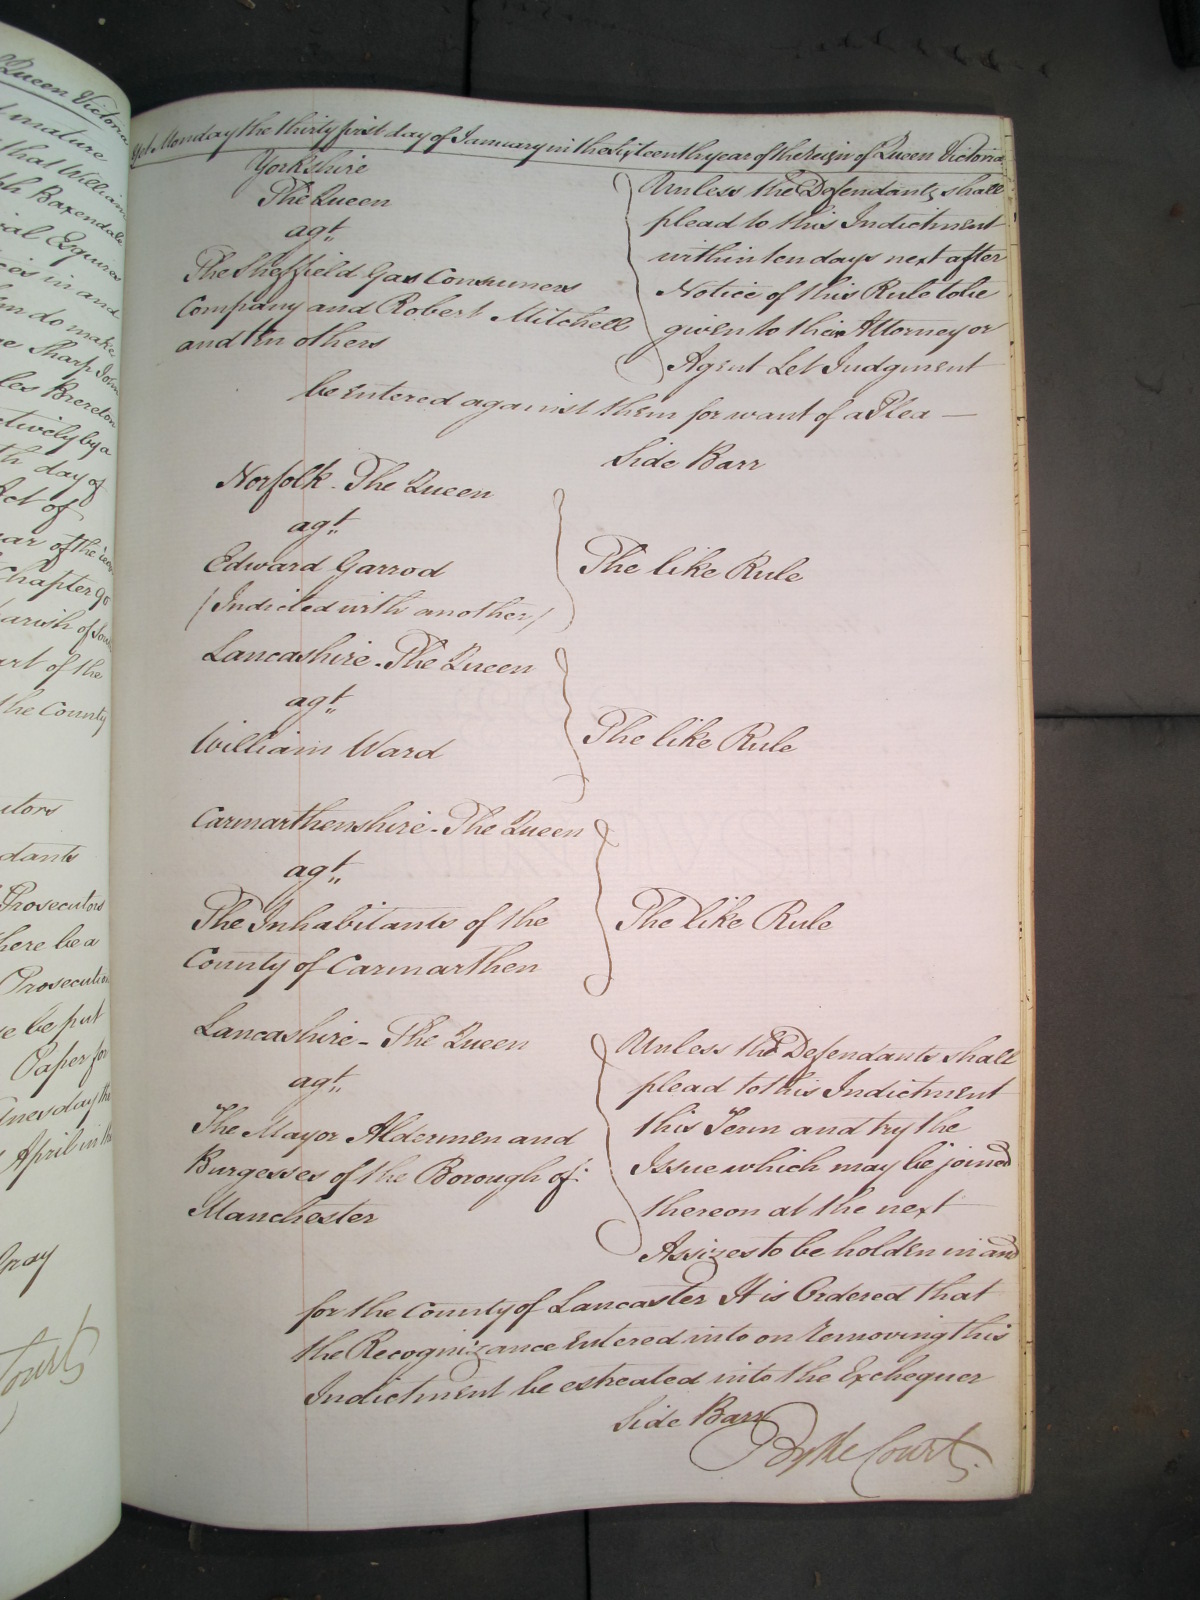 Yet Monday the thirty first day of January in the Sixteenth year of the reign of Queen Victoria
Yorkshire
The Queen
agt.
The Sheffield Gas Consumers
Company and Robert Mitchell
and ten others
Unless the Defendants shall
plead to this Indictment
within ten days next after
Notice of this Rule to be
given to their Attorney or
Agent Let Judgment
be entered against them for want of a Plea —
Side Barr
Norfolk - The Queen
agt.
Edward Garrod
(Indicted with another)
The like Rule
Lancashire - The Queen
agt.
William Ward
The like Rule
Carmarthenshire - The Queen
agt.
The Inhabitants of the
County of Carmarthen
The like Rule
Lancashire - The Queen
agt.
The Mayor Aldermen and
Burgesses of the Borough of
Manchester
Unless the Defendants shall
plead to this Indictment
this Term and try the
Issue which may be joined
thereon at the next
Assizes to be holden in and
for the County of Lancaster It is Ordered that
the Recognizance entered into on removing this
Indictment be estreated into the Exchequer
Side Barr
By the Court.
Queen Victoria
mature
that William
Baxendale
Esquires
in and
do make
Sharp John
Brereton
by a
day of
Act of
of the
Chapter 90
of
of the
the County
Prosecutors
here be a
be put
Paper for
the
April in the
Gray
Court